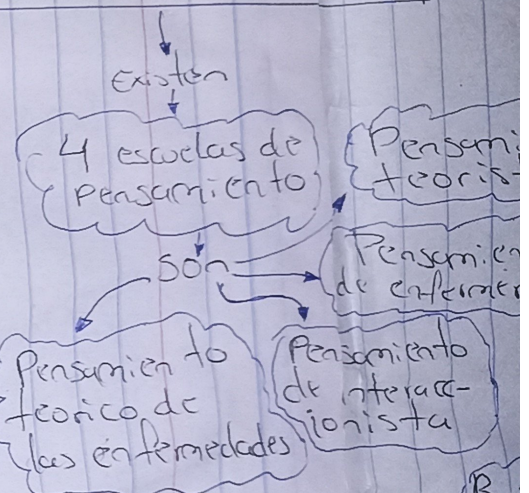 Existen
4 escuelas de
pensamiento
Pensami
teoris
son
Pensamien
de enfermer
Pensamiento
teorico de
las enfermedades
Pensamiento
de interacc-
ionista
R